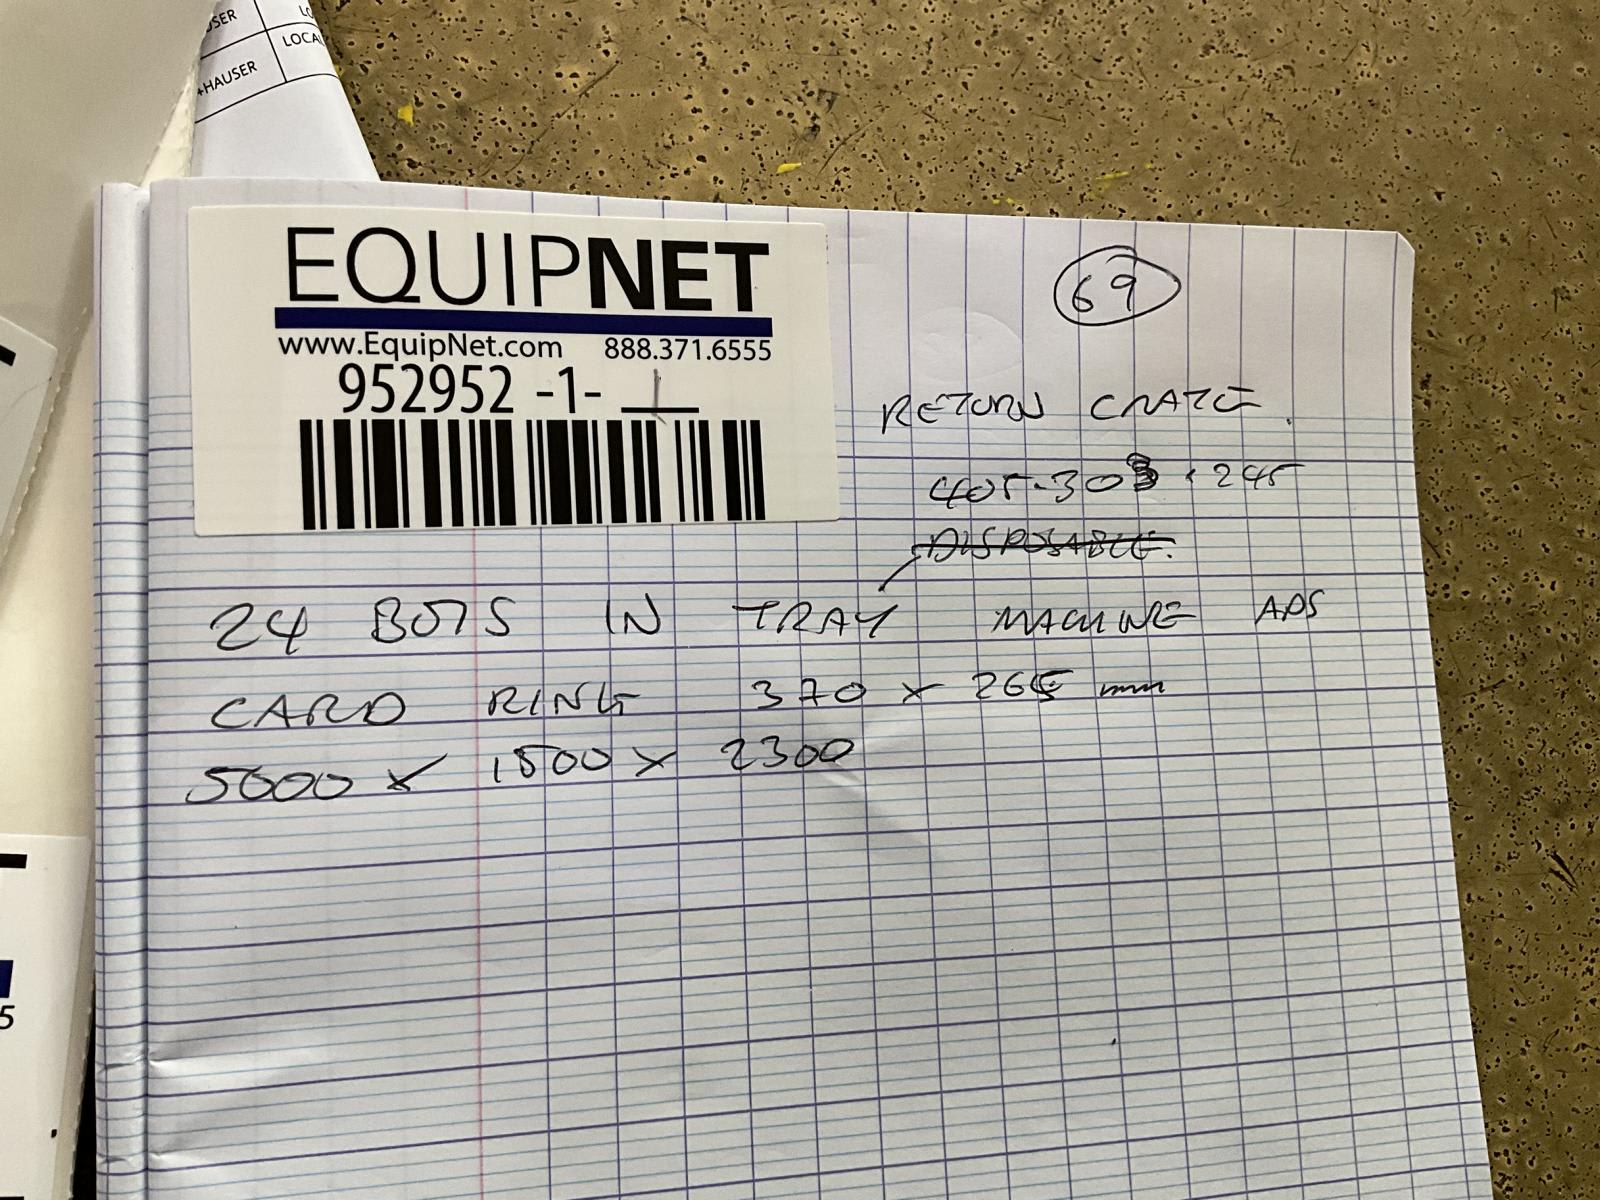 +HAUSER
EQUIPNET
www.EquipNet.com 888.371.6555
952952 -1- 1
69
RETURN CRATE.
405·303 · 245
DISPOSABLE.
24 BOTS IN TRAY MACHINE APS
CARD RING 370 x 265 mm
5000 x 1500 x 2300
5